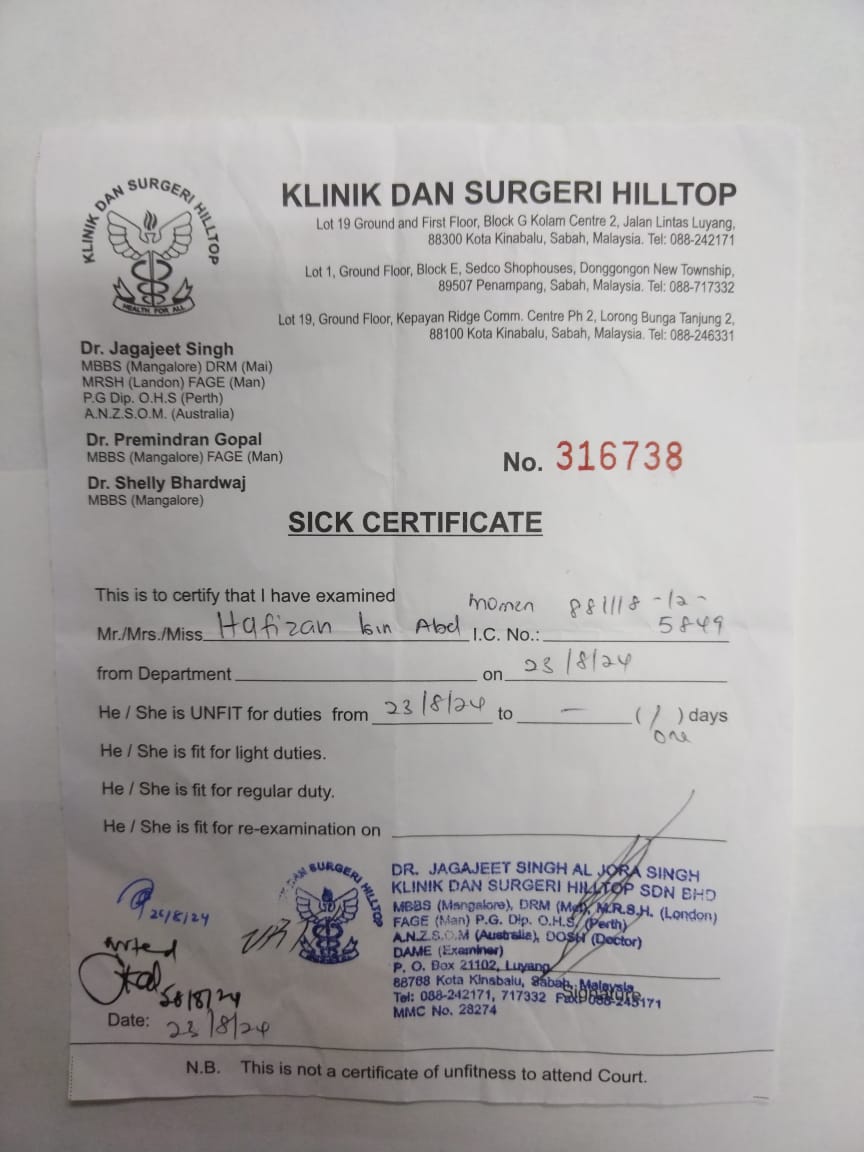 KLINIK DAN SURGERI HILLTOP
HEALTH FOR ALL
KLINIK DAN SURGERI HILLTOP
Lot 19 Ground and First Floor, Block G Kolam Centre 2, Jalan Lintas Luyang,
88300 Kota Kinabalu, Sabah, Malaysia. Tel: 088-242171
Lot 1, Ground Floor, Block E, Sedco Shophouses, Donggongon New Township,
89507 Penampang, Sabah, Malaysia. Tel: 088-717332
Lot 19, Ground Floor, Kepayan Ridge Comm. Centre Ph 2, Lorong Bunga Tanjung 2,
88100 Kota Kinabalu, Sabah, Malaysia. Tel: 088-246331
Dr. Jagajeet Singh
MBBS (Mangalore) DRM (Mai)
MRSH (Landon) FAGE (Man)
P.G Dip. O.H.S (Perth)
A.N.Z.S.O.M. (Australia)
Dr. Premindran Gopal
MBBS (Mangalore) FAGE (Man)
Dr. Shelly Bhardwaj
MBBS (Mangalore)
No. 316738
SICK CERTIFICATE
This is to certify that I have examined
Mr./Mrs./Miss Hafizan bin Abd momen I.C. No.: 881118-12-5849
from Department on 23/8/24
He / She is UNFIT for duties from 23/8/24 to — (1) days
one
He / She is fit for light duties.
He / She is fit for regular duty.
He / She is fit for re-examination on
DAN SURGERI HILLTOP
DR. JAGAJEET SINGH AL JORA SINGH
KLINIK DAN SURGERI HILLTOP SDN BHD
MBBS (Mangalore), DRM (Mal), M.R.S.H. (London)
FAGE (Man) P.G. Dip. O.H.S. (Perth)
A.N.Z.S.O.M (Australia), DOSH (Doctor)
DAME (Examiner)
P. O. Box 21102, Luyang
88768 Kota Kinabalu, Sabah, Malaysia
Tel: 088-242171, 717332 Fax: 088-245171
MMC No. 28274
Signature
26/8/24
URT
Date: 23/8/24
N.B. This is not a certificate of unfitness to attend Court.